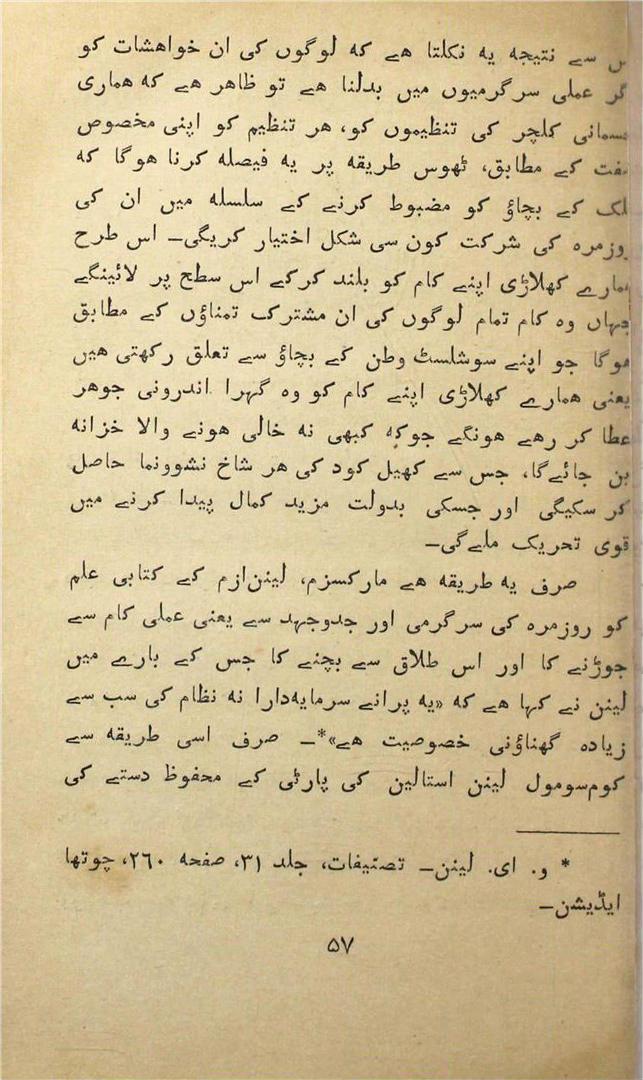 سے نتیجہ یہ نکلتا ھے کہ لوگوں کی ان خواھشات کو
گر عملی سرگرمیوں میں بدلنا ھے تو ظاھر ھے کہ ھماری
جسمانی کلچر کی تنظیموں کو، ھر تنظیم کو اپنی مخصوص
صفت کے مطابق، ٹھوس طریقہ پر یہ فیصلہ کرنا ھوگا کہ
ملک کے بچاؤ کو مضبوط کرنے کے سلسلہ میں ان کی
روزمرہ کی شرکت کون سی شکل اختیار کریگی۔ اس طرح
ھمارے کھلاڑی اپنے کام کو بلند کرکے اس سطح پر لائینگے
جہاں وہ کام تمام لوگوں کی ان مشترک تمناؤں کے مطابق
ھوگا جو اپنے سوشلسٹ وطن کے بچاؤ سے تعلق رکھتی ھیں
یعنی ھمارے کھلاڑی اپنے کام کو وہ گہرا اندرونی جوھر
عطا کر رھے ھونگے جوکہ کبھی نہ خالی ھونے والا خزانہ
بن جائےگا، جس سے کھیل کود کی ھر شاخ نشوونما حاصل
کر سکیگی اور جسکی بدولت مزید کمال پیدا کرنے میں
قوی تحریک ملےگی۔
صرف یہ طریقہ ھے مارکسزم، لینن‌ازم کے کتابی علم
کو روزمرہ کی سرگرمی اور جدوجہد سے یعنی عملی کام سے
جوڑنے کا اور اس طلاق سے بچنے کا جس کے بارے میں
لینن نے کہا ھے کہ «یہ پرانے سرمایہ‌دارا نہ نظام کی سب سے
زیادہ گھناؤنی خصوصیت ھے»*۔ صرف اسی طریقہ سے
کوم‌سومول لینن استالین کی پارٹی کے محفوظ دستے کی
* و. ای. لینن۔ تصنیفات، جلد ۳۱، صفحہ ۲۶۰، چوتھا
ایڈیشن۔
۵۷